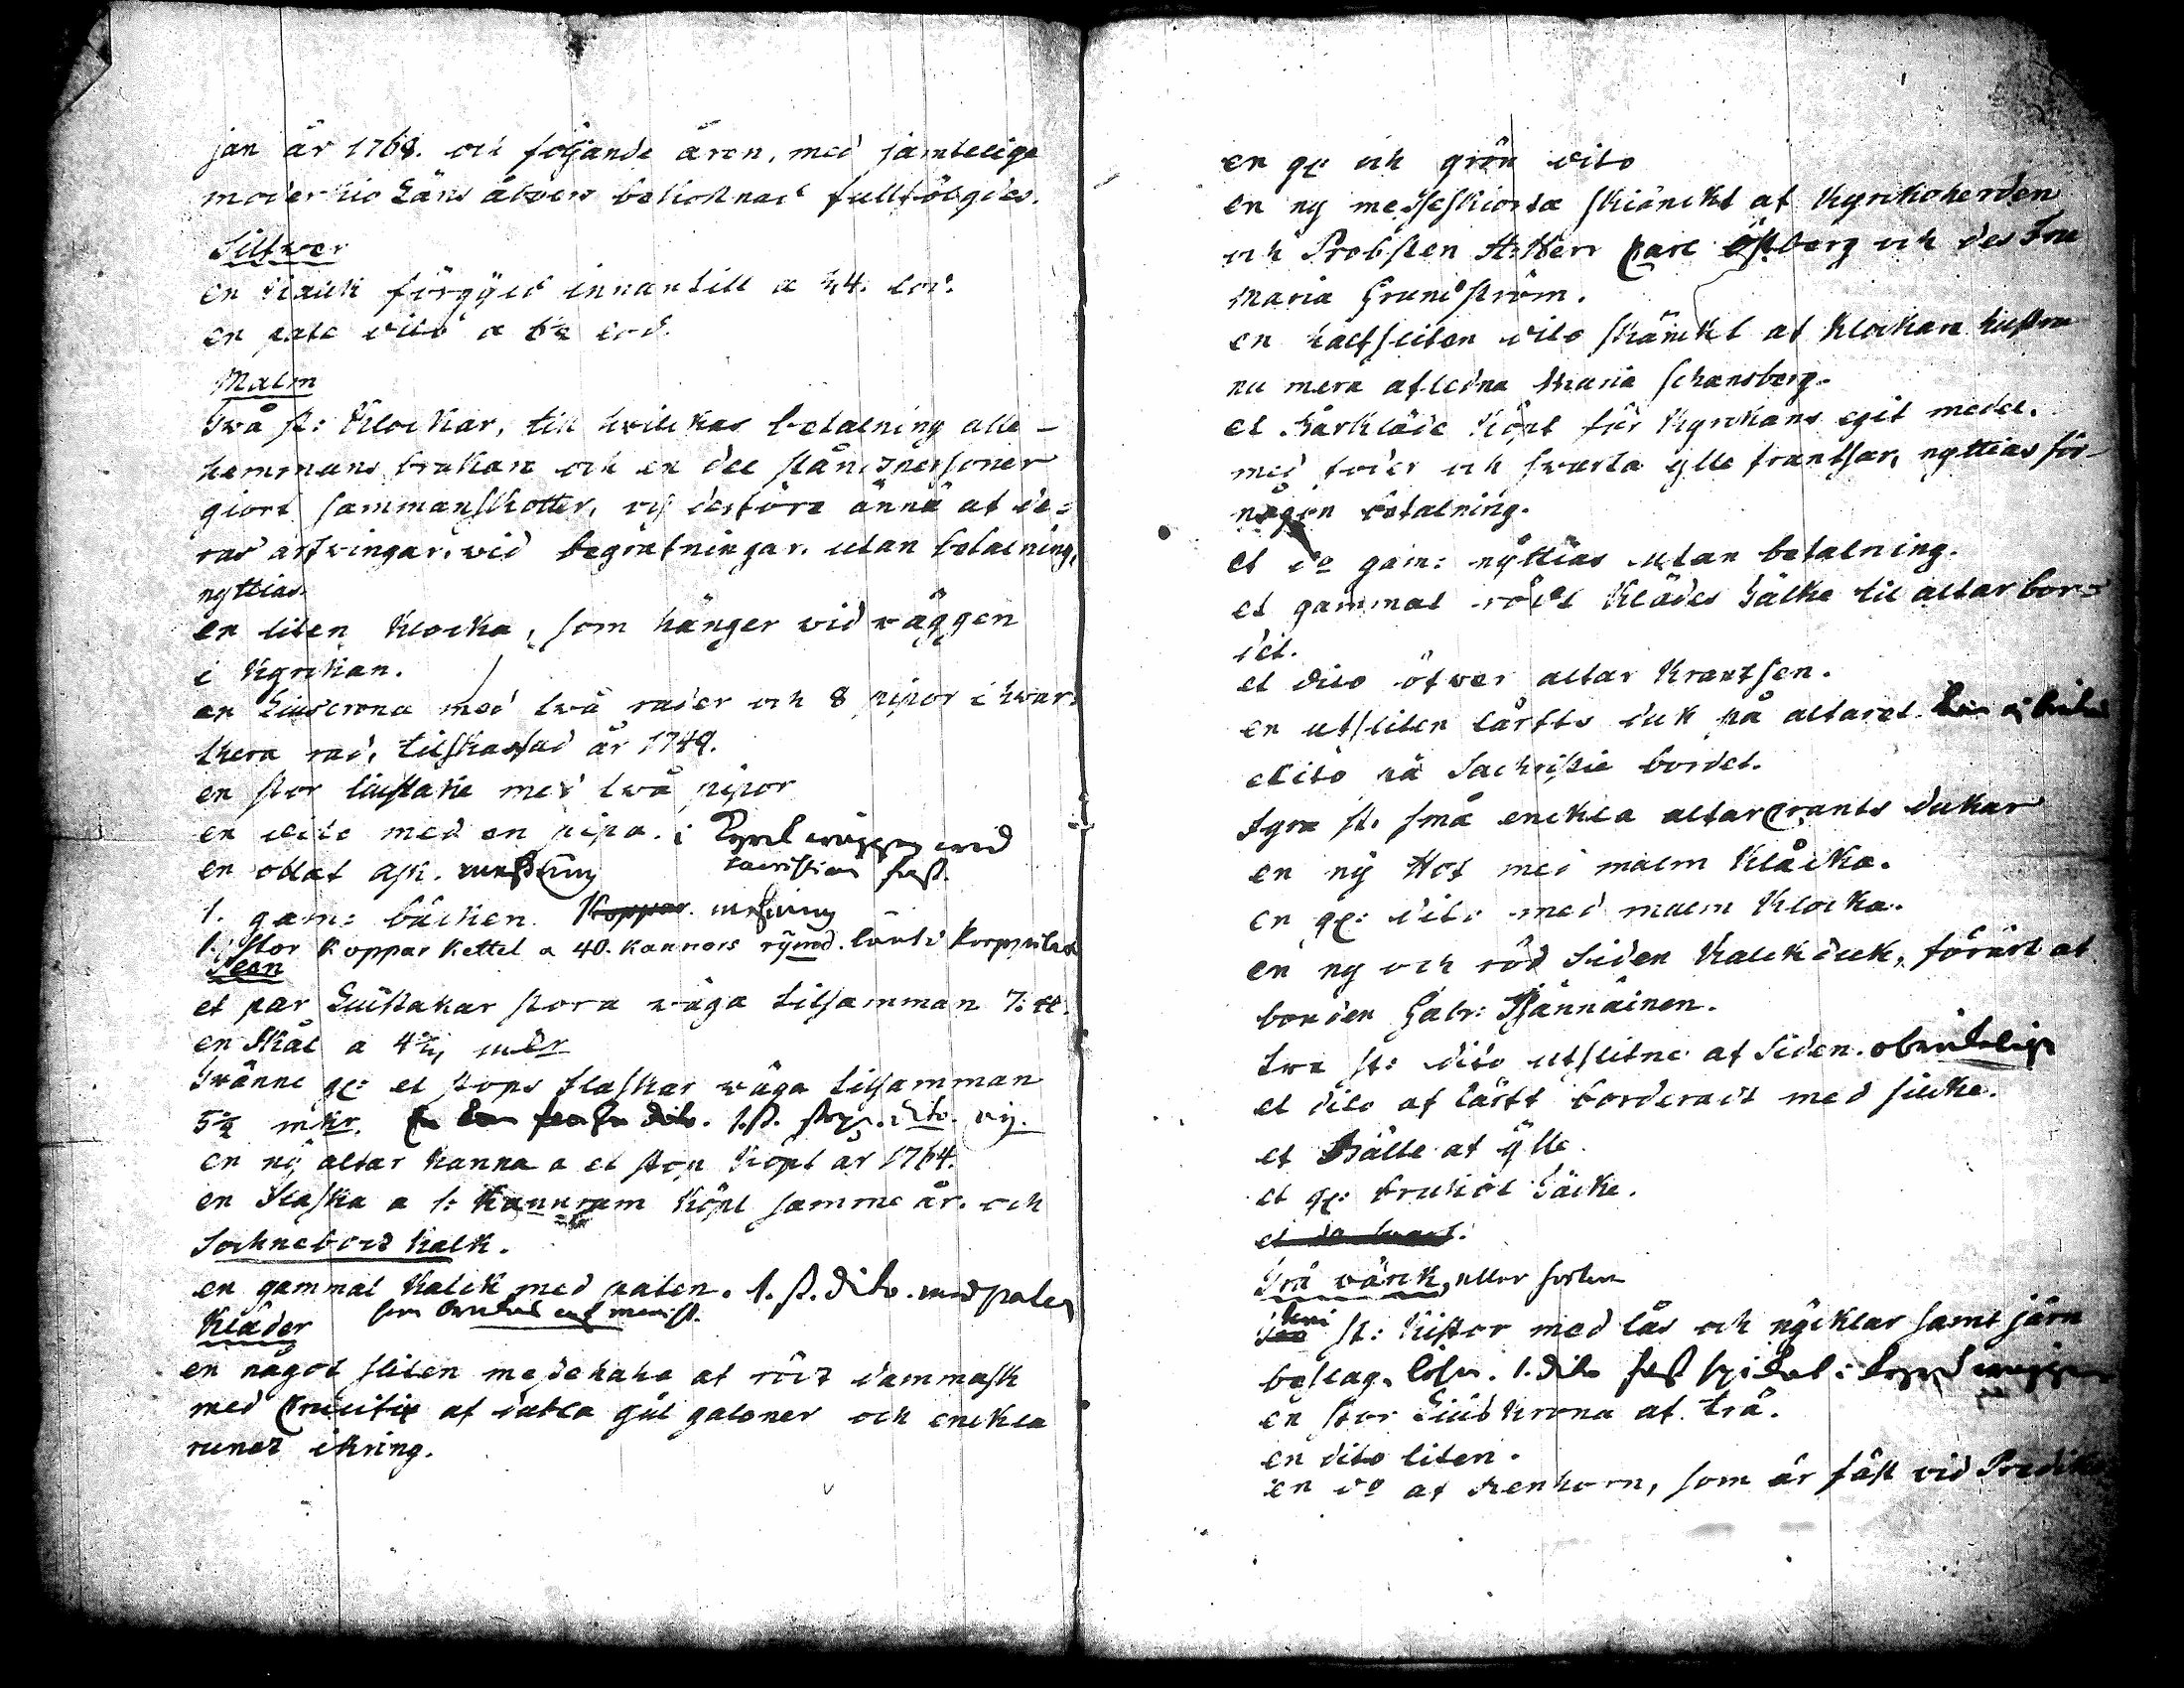 jan år 1768. och följande åren, med samtelige
moderkio Läns åboers bekostnad fullfölgdes.
Silfwer
en Kalck förgyld innantill a 24. lod.
en pate dito a 6½ lod.
Malm
Två st: Klockar, till hvilckas betalning alle-
hemmans brukare och en del ståndspersoner
giort sammanskotter, och derföre ännu af de-
ras arfvingar, wid begrafningar, utan betalning,
nyttias.
en liten Klocka, som hänger vid väggen
i Kyrckan.
en Liuscrona med två rader och 8 pipor i hwar-
thera rad, tilskaffad år 1749.
en stor liustake med två pipor
en dito med en pipa. i Kyrck wäggen wid
sacristian fast.
en oblat ask.
1. gam: bäcken. Koppar. messing
1. Stor Koppar Kettel a 40. Kannors rymd.
Teen
et par Liustakar stora väga tilsamman 7. ℔.
en Skål a 4½ mkr
Tvänne gl: et stops flaskar väga tilsamman
5½ mkr. 1. st. stops. dito. ny.
en ny altar Kanna a et stop Köpt år 1764.
en flaska a 1: Kannrum Köpt samma år. och
Sochnebod Kalk.
en gammal Kalck med paten. 1. st. dito. med paten
som brukas
Kläder
en något sliten messehake af rödt dammask
med Crucifix af dubla gul galoner och enckla
rundt ikring.
en gl och grön dito
en ny messeskiorta skiänckt af Kyrckoherden
och Probsten H: Herr Carl Östberg och des Fru
Maria Grundström.
en halfsliten dito skänckt af Klockare hustru
nu mera afledna Maria Schansberg.
et Bårkläde Köpt för Kyrckans egit medel.
med foder och swarta ylle frantsar, nyttias för
någon betalning.
et do gam: nyttias utan betalning.
et gammal rödt Klädes Täcke til altar bor-
det.
et dito öfwer altar Krantsen.
en utsliten lärfts duk på altaret.
dito på Sachristie bordet.
Fyra st. små enckla altarcrants dukar
en ny Hof med malm Klåcka.
en gl: dito med malm Klocka.
en ny och röd Siden Kalck duk, förärt af
bonden Gabr: Pännäinen.
Tre st: dito utslitne af Siden. obrukelige
et dito af lärft borderadt med silcke.
et Bälte af ylle.
et gl: bruköl Täcke.
et do swart.
Trä wärck, eller
två st: Kistor med lås och nycklar samt järn
beslag. 1. dito fast spikat i Kyrck wäggen
en stor Liuskrona af trä.
en dito liten.
en do af renhorn, som är fäst vid Predik